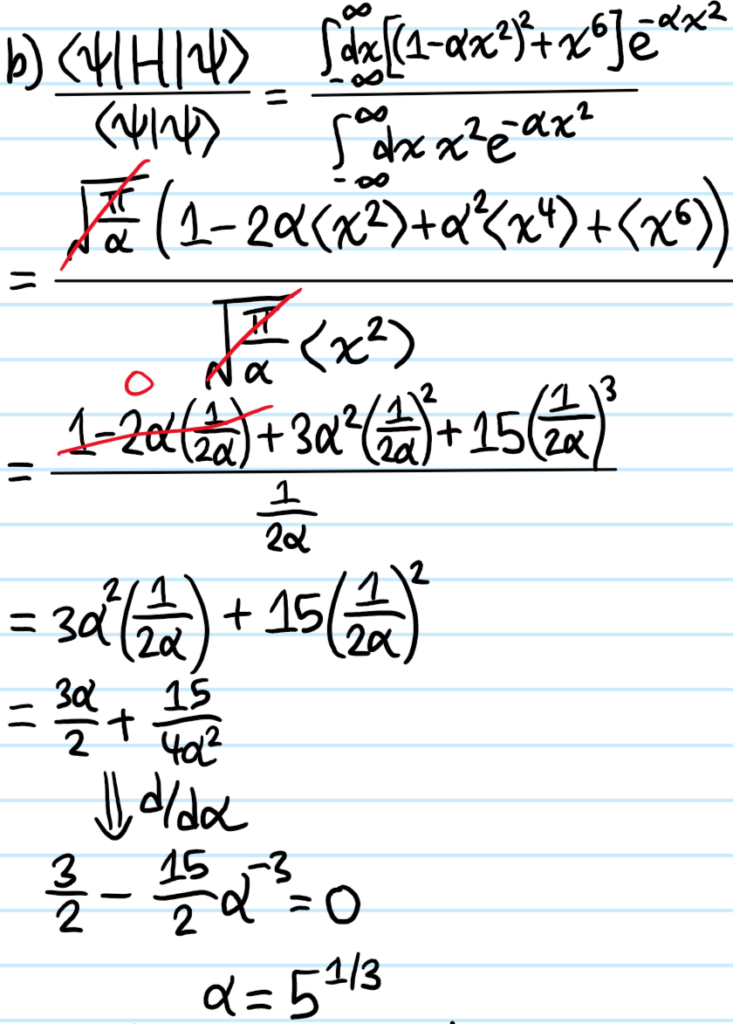 b) ⟨ψ|H|ψ⟩ / ⟨ψ|ψ⟩ = ∫_{-∞}^{∞} dx[(1-αx²)²+x⁶]e^{-αx²} / ∫_{-∞}^{∞} dx x²e^{-αx²}
= √(π/α) (1-2α⟨x²⟩+α²⟨x⁴⟩+⟨x⁶⟩) / √(π/α) ⟨x²⟩
0
= 1-2α(1/2α)+3α²(1/2α)²+15(1/2α)³ / (1/2α)
= 3α²(1/2α) + 15(1/2α)²
= 3α/2 + 15/4α²
⇓ d/dα
3/2 - 15/2 α⁻³ = 0
α = 5^{1/3}